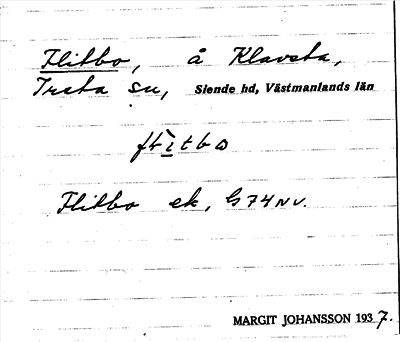 Flitbo, å Klavsta,
Irsta sn, Siende hd, Västmanlands län
flitbo
Flitbo ek, G74NV.
MARGIT JOHANSSON 1937.